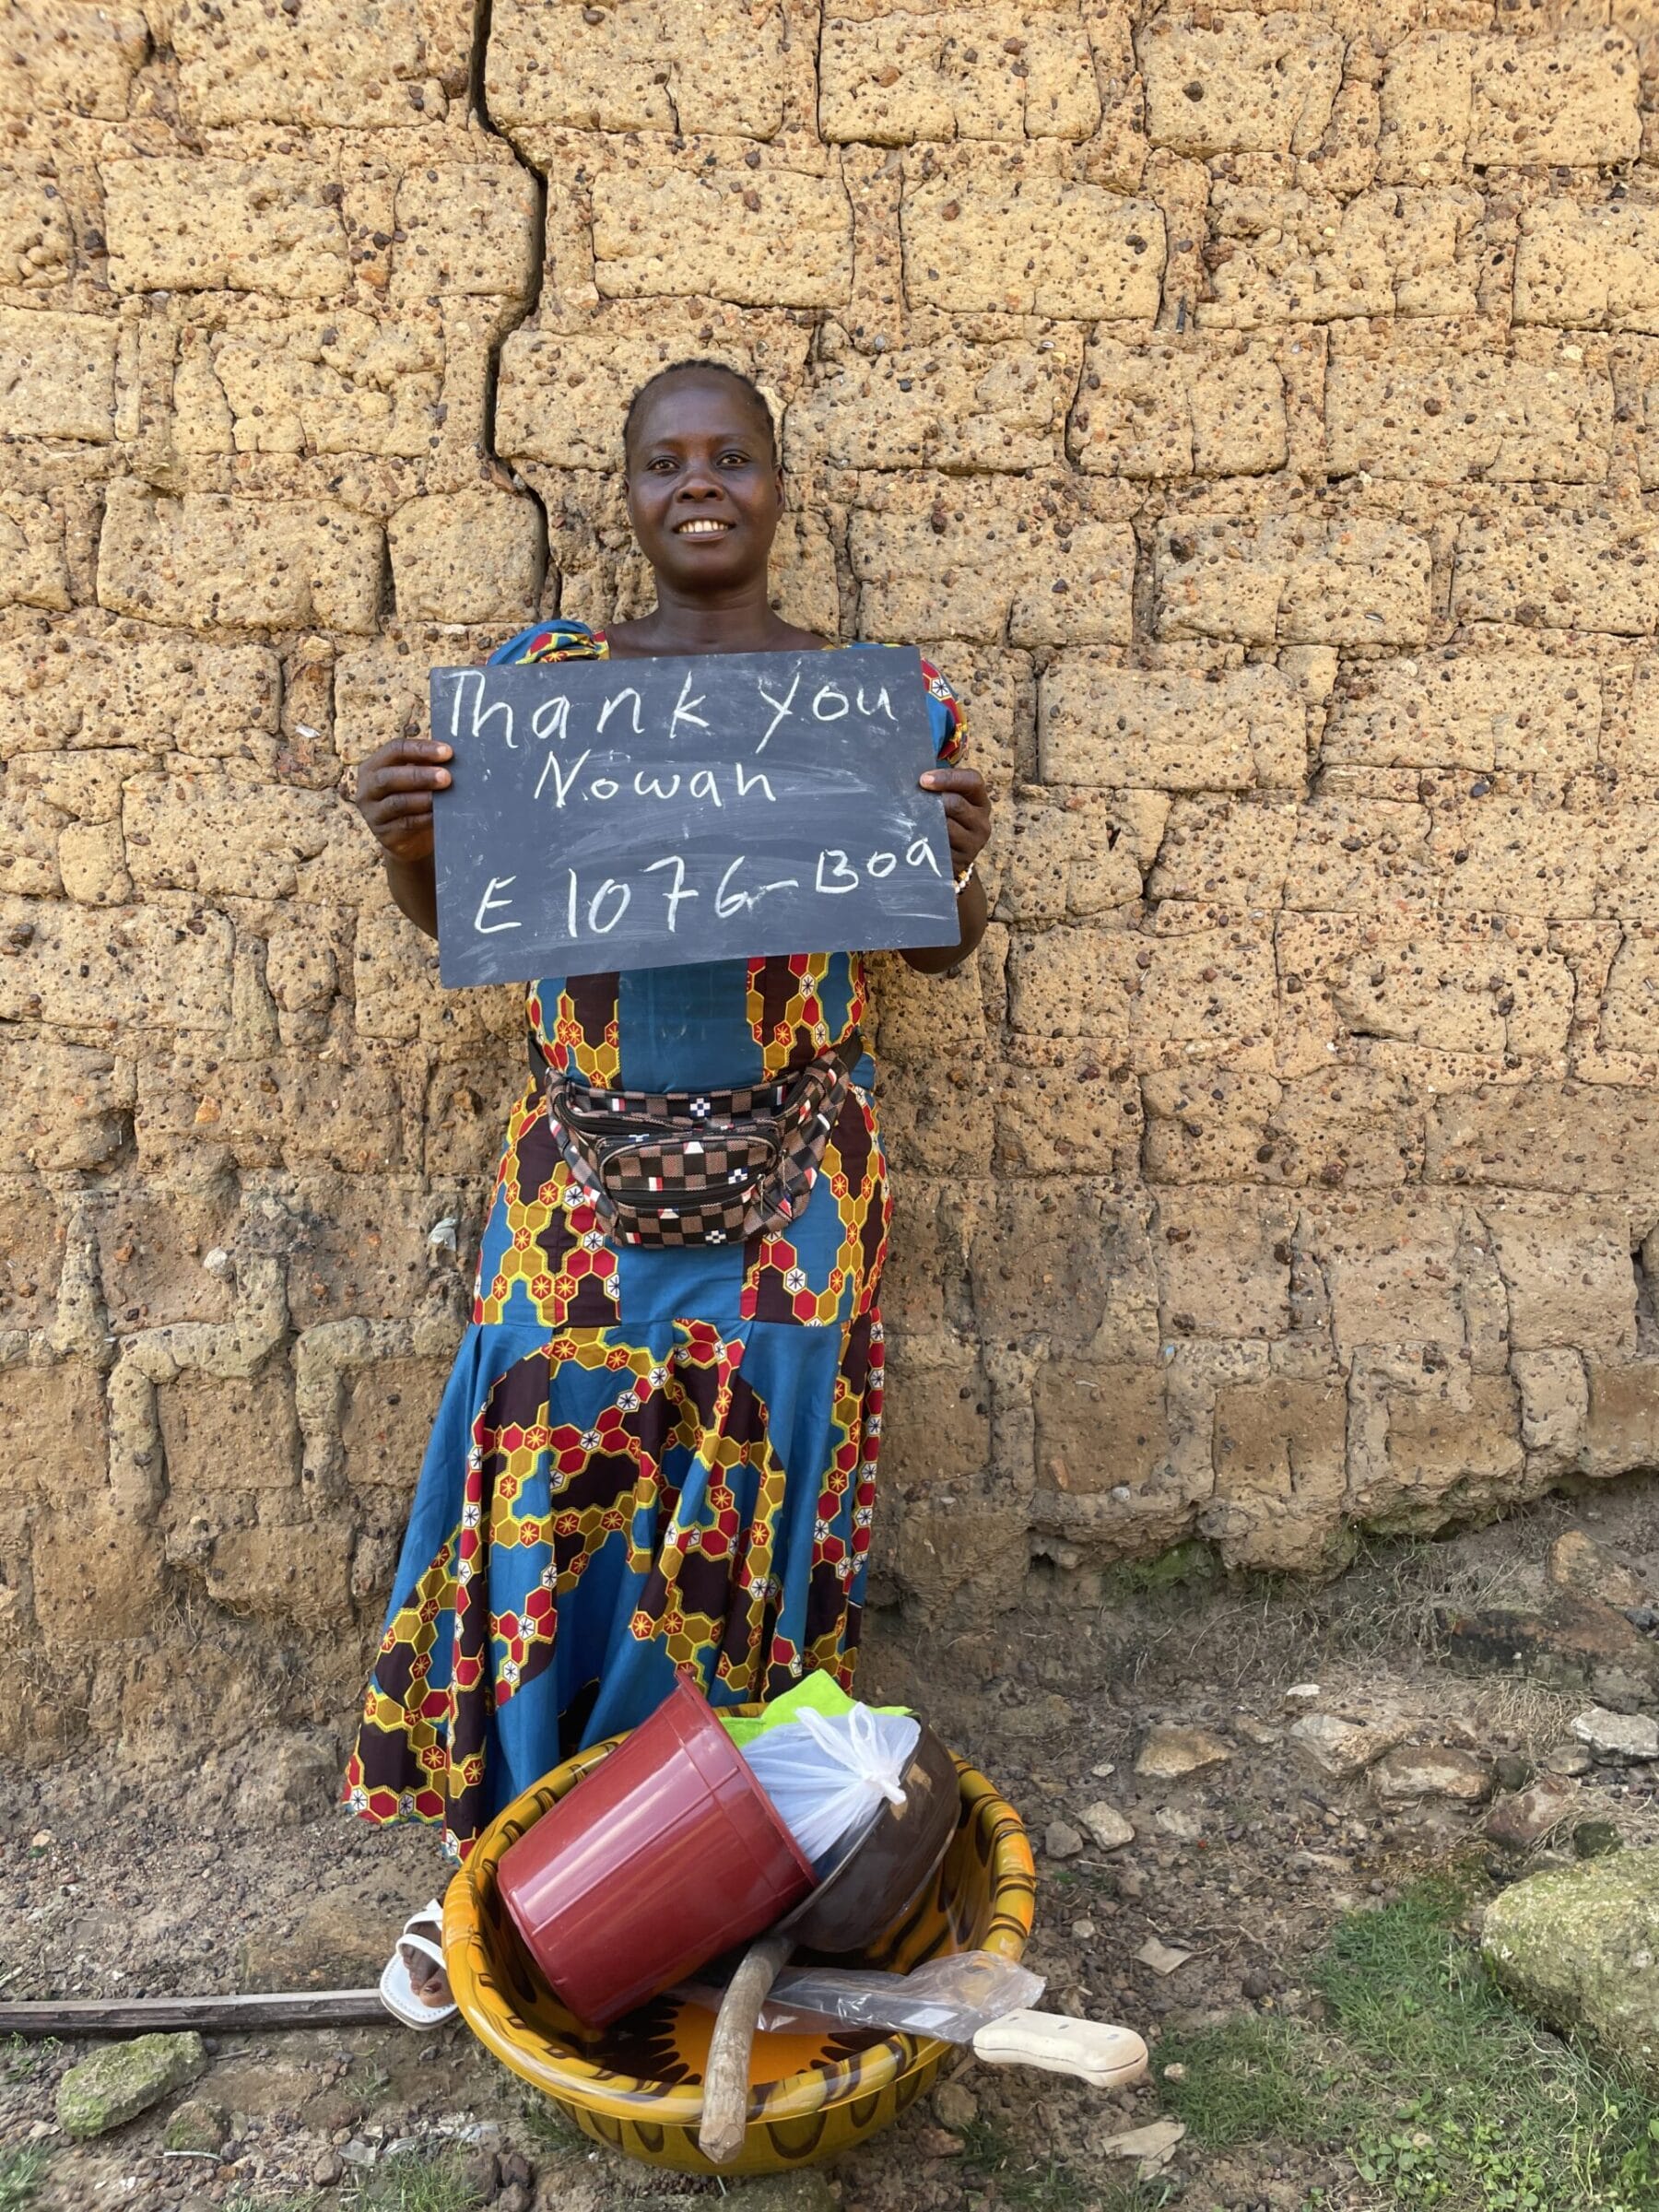 Thank you
Nowah
E 1076-Boa